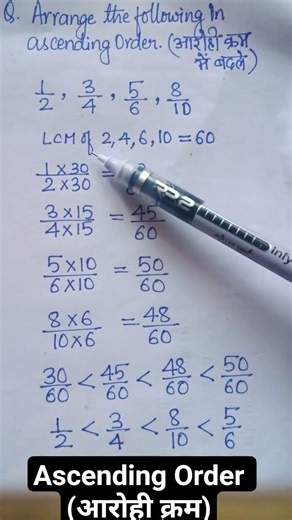 Q. Arrange the following In
ascending Order. (आरोही क्रम
में बदलें)
1/2, 3/4, 5/6, 8/10
LCM of 2,4,6,10 = 60
1×30/2×30 =
3×15/4×15 = 45/60
5×10/6×10 = 50/60
8×6/10×6 = 48/60
30/60 < 45/60 < 48/60 < 50/60
1/2 < 3/4 < 8/10 < 5/6
Ascending Order
(आरोही क्रम)